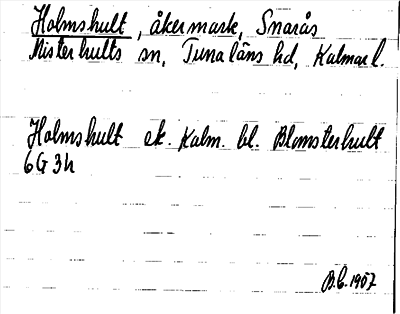 Holmshult, åkermark, Snarås
Misterhults sn, Tunaläns hd, Kalmar l.
Holmshult ek. Kalm. bl. Blomsterhult
6G3h
B.C. 1957